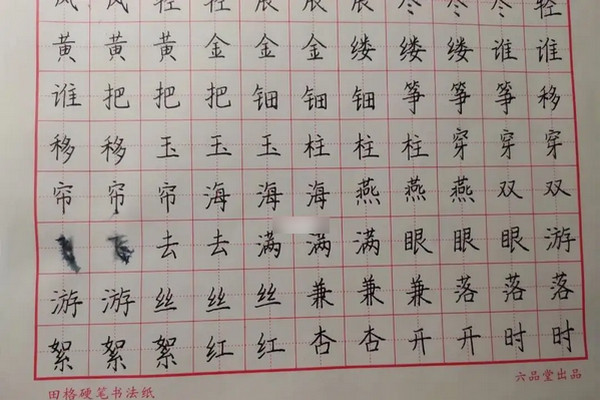 风 风 轻 轻 辰 辰 尽 尽 尽 轻
黄 黄 黄 金 金 金 缕 缕 缕 谁 谁
谁 把 把 把 钿 钿 钿 筝 筝 筝 移
移 移 玉 玉 玉 柱 柱 柱 穿 穿 穿
帘 帘 帘 海 海 海 燕 燕 燕 双 双
去 去 满 满 满 眼 眼 眼 游
游 游 丝 丝 丝 兼 兼 兼 落 落 落
絮 絮 絮 红 红 杏 杏 开 开 时 时
田格硬笔书法纸
六品堂出品